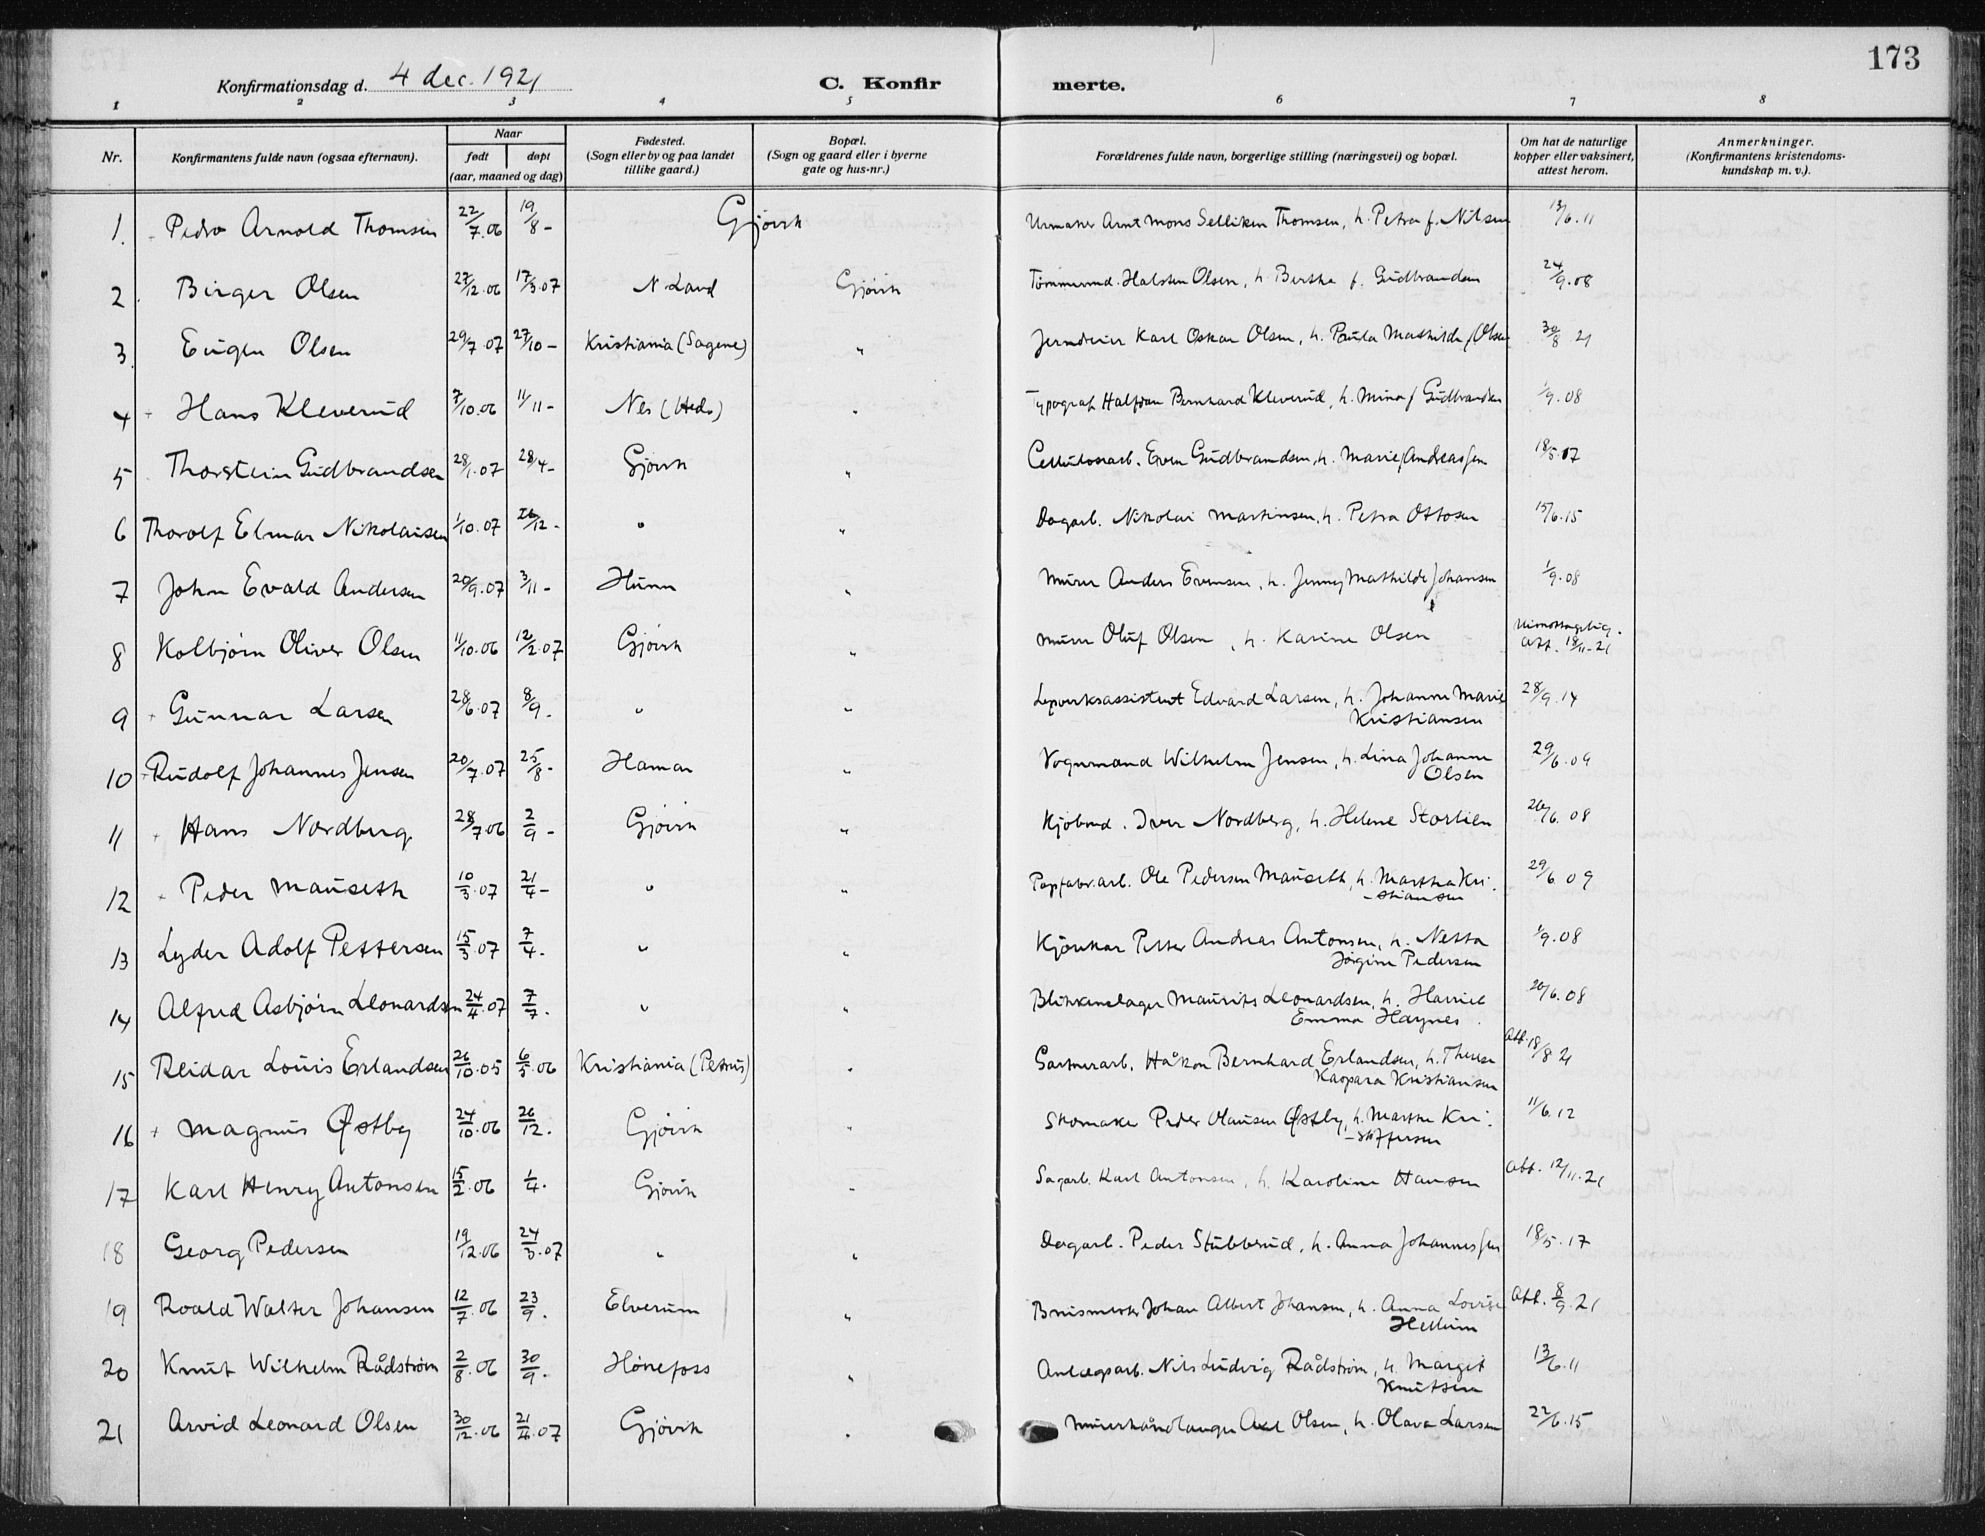 173
Konfirmationsdag d. 4 dec. 1921
C. Konfir merte.
1 2 3 4 5 6 7 8
Nr.
Konfirmantens fulde navn (ogsaa efternavn).
Naar
født
døpt
(aar, maaned og dag)
Fødested.
(Sogn eller by og paa landet
tillike gaard.)
Bopæl.
(Sogn og gaard eller i byerne
gate og hus-nr.)
Forældrenes fulde navn, borgerlige stilling (næringsvei) og bopæl.
Om hat de naturlige
kopper eller vaksinert,
attest herom.
Anmerkninger.
(Konfirmantens kristendoms-
kundskap m. v.).
1. Pedro Arnold Thomsen 22/7.06 19/8 - Gjövik Urmaker Arnt Mons Selliken Thomsen, h. Petra f. Nilsen 13/6.11
2. Birger Olsen 27/12.06 17/3.07 N. Land Gjövik Tömmermd. Halsten Olsen, h. Berthe f. Gudbrandsen 24/9.08
3. Eugen Olsen 29/7.07 27/10 - Kristiania (Sagene) " Jerndreier Karl Oskar Olsen, h. Paula Mathilde f Olsen 30/8 21
4 Hans Kleverud 7/10.06 11/11 - Nes (Hedm) " Typograf Halfdan Bernhard Kleverud, h. Mina f Gudbrandsen 1/9.08
5 Thorstein Gudbrandsen 28/1.07 28/4 - Gjövik " Cellulosearb. Even Gudbrandsen, h. Marie f Andreassen 18/5 17
6 Thorolf Elmar Nikolaisen 1/10.07 26/12 - " " Dagarb. Nikolai Martinsen, h. Petra Ottosen 15/6.15
7 John Evald Andersen 20/9.07 3/11 - Hunn " Murer Anders Evensen, h. Jenny Mathilde Johansen 1/9.08
8 Kolbjörn Oliver Olsen 11/10.06 12/2.07 Gjövik " Murer Oluf Olsen, h. Karine Olsen Uimottagelig.
Att. 18/11-21
9 Gunnar Larsen 28/6.07 8/9. " " Edvard Larsen, h. Johanne Marie 28/9.14
Kristiansen
10 Rudolf Johannes Jensen 20/7.07 25/8 - Hamar " Vognmand Wilhelm Jensen, h. Lina Johanne 29/6.09
Olsen
11 Hans Nordberg 28/7.06 2/9 - Gjövik " Kjöbmd. Iver Nordberg, h. Helene Storlien 26/6.08
12 Peder Mauseth 10/3.07 21/4 - " " Papfabr.arb. Ole Pedersen Mauseth, h. Martha Kri- 29/6.09
-stiansen
13 Lyder Adolf Pettersen 15/3.07 7/4. " " Petter Andreas Antonsen, h. Netta 1/9.08
Jörgine Pedersen
14 Alfred Asbjörn Leonardsen 24/4.07 7/7. " " Blikkenslager Maurits Leonardsen, h. Harriet 26/6.08
Emma Haynes
15 Reidar Louis Erlandsen 26/10.05 6/5.06 Kristiania (Petrus) " Gartnerarb. Håkon Bernhard Erlandsen, h. Therese Att. 18/8 21
Kaspara Kristiansen
16 Magnus Østby 24/10.06 26/12. Gjövik " Skomaker Peder Olausen Østby, h. Marthe Kri- 11/6.12
-stoffersen
17 Karl Henry Antonsen 15/2.06 1/4. Gjövik " Sagarb. Karl Antonsen, h. Karoline Hansen Att. 12/11.21
18 Georg Pedersen 19/12.06 24/3.07 " " Dagarb. Peder Stubberud, h. Anna Johannessen 18/5.17
19 Roald Walter Johansen 12/7.06 23/9. Elverum " Johan Albert Johansen, h. Anna Lovise Att. 8/9.21
Hellum
20 Knut Wilhelm Rådström 2/8.06 30/9. Hönefoss " Anlægsarb. Nils Ludvig Rådström, h. Margit 13/6.11
Knutsen
21 Arvid Leonard Olsen 30/12.06 21/4.07 Gjövik " Murerhåndlanger Axel Olsen, h. Olava Larsen 22/6.15